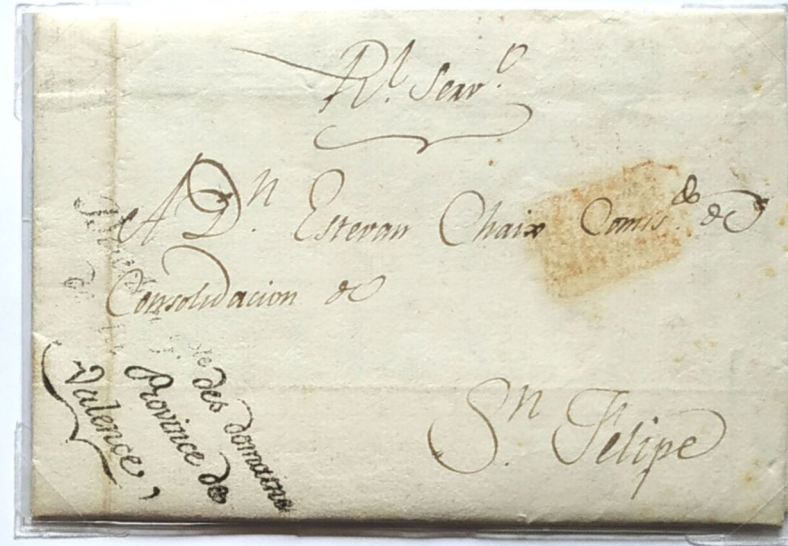 Rl. Serv.o
A Dn. Estevan Chaix Comisdo. de
Consolidacion de
Sn. Felipe
des domaines
Province de
Valence,